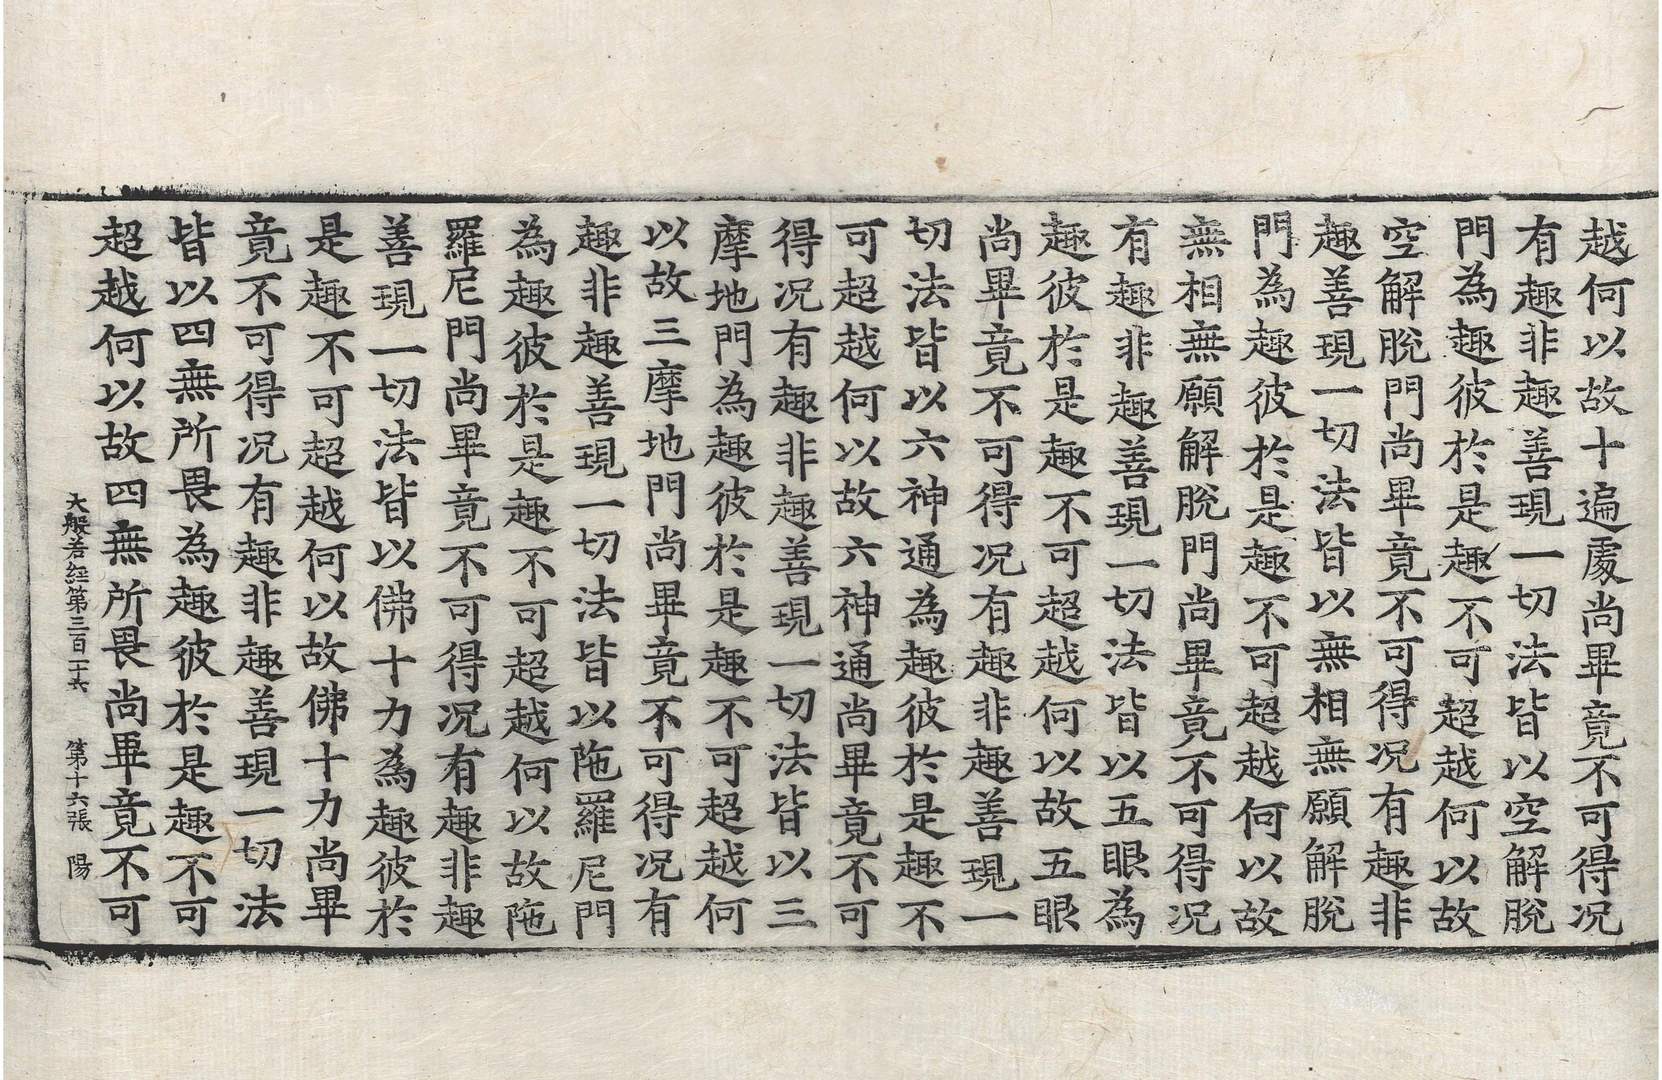 越何以故十遍處尚畢竟不可得况
有趣非趣善現一切法皆以空解脫
門為趣彼於是趣不可超越何以故
空解脫門尚畢竟不可得况有趣非
趣善現一切法皆以無相無願解脫
門為趣彼於是趣不可超越何以故
無相無願解脫門尚畢竟不可得况
有趣非趣善現一切法皆以五眼為
趣彼於是趣不可超越何以故五眼
尚畢竟不可得况有趣非趣善現一
切法皆以六神通為趣彼於是趣不
可超越何以故六神通尚畢竟不可
得况有趣非趣善現一切法皆以三
摩地門為趣彼於是趣不可超越何
以故三摩地門尚畢竟不可得况有
趣非趣善現一切法皆以陁羅尼門
為趣彼於是趣不可超越何以故陁
羅尼門尚畢竟不可得况有趣非趣
善現一切法皆以佛十力為趣彼於
是趣不可超越何以故佛十力尚畢
竟不可得况有趣非趣善現一切法
皆以四無所畏為趣彼於是趣不可
超越何以故四無所畏尚畢竟不可
大般若經第三百二十六 第十六張 陽